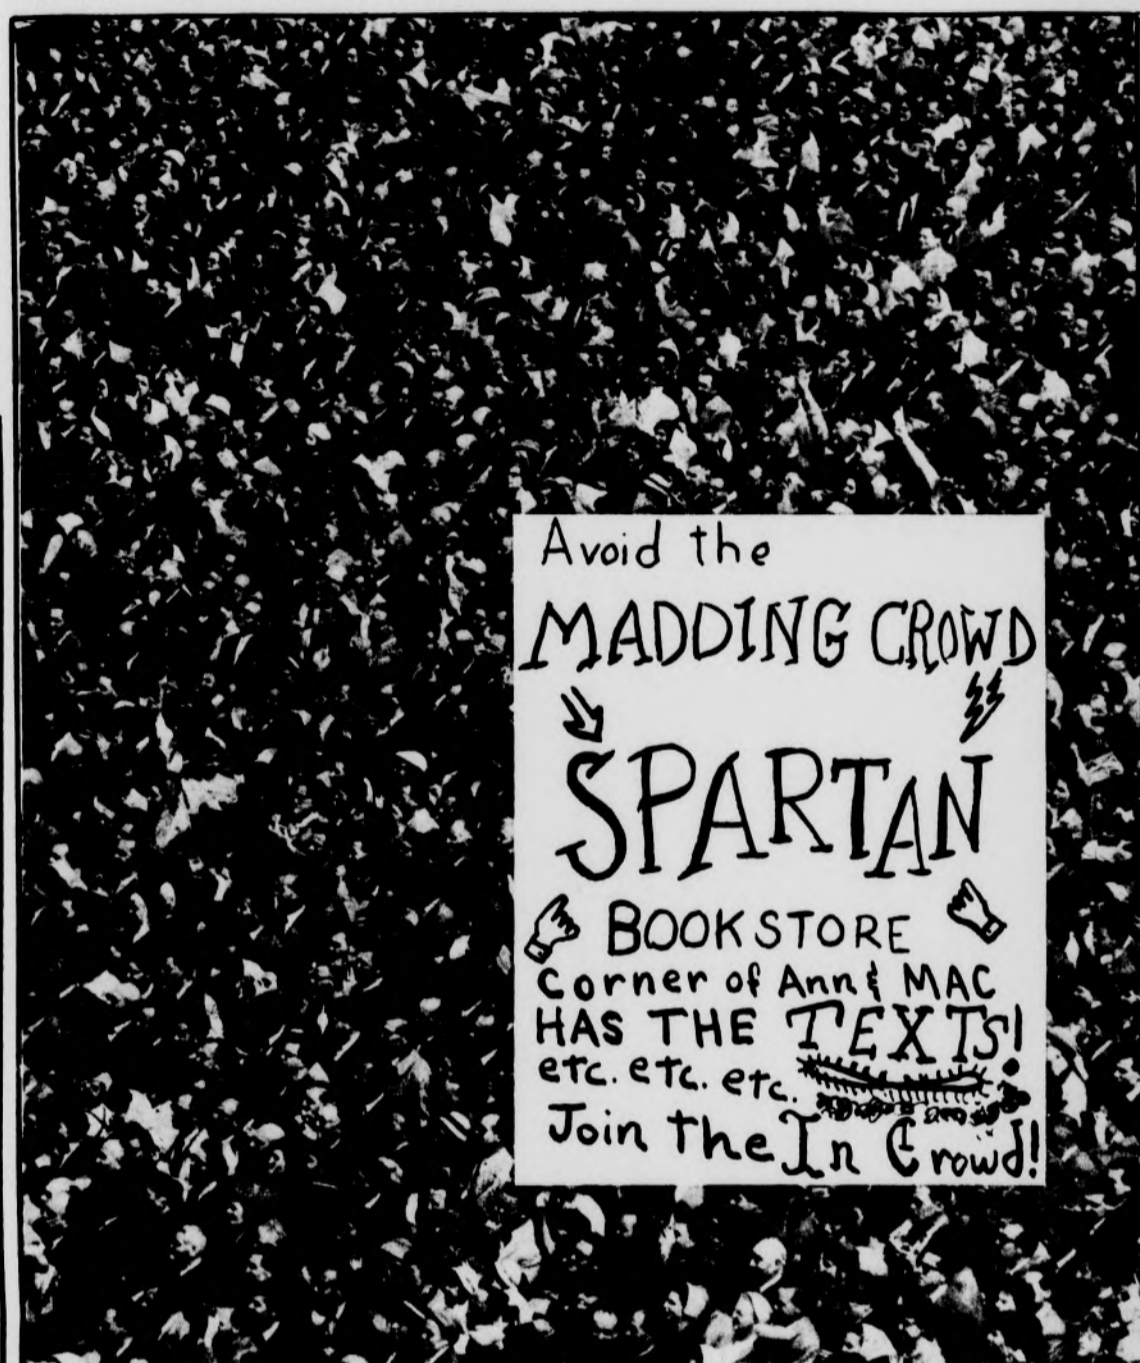 Avoid the
MADDING CROWD
SPARTAN
BOOKSTORE
Corner of Ann & MAC
HAS THE TEXTS!
etc. etc. etc.
Join the In Crowd!